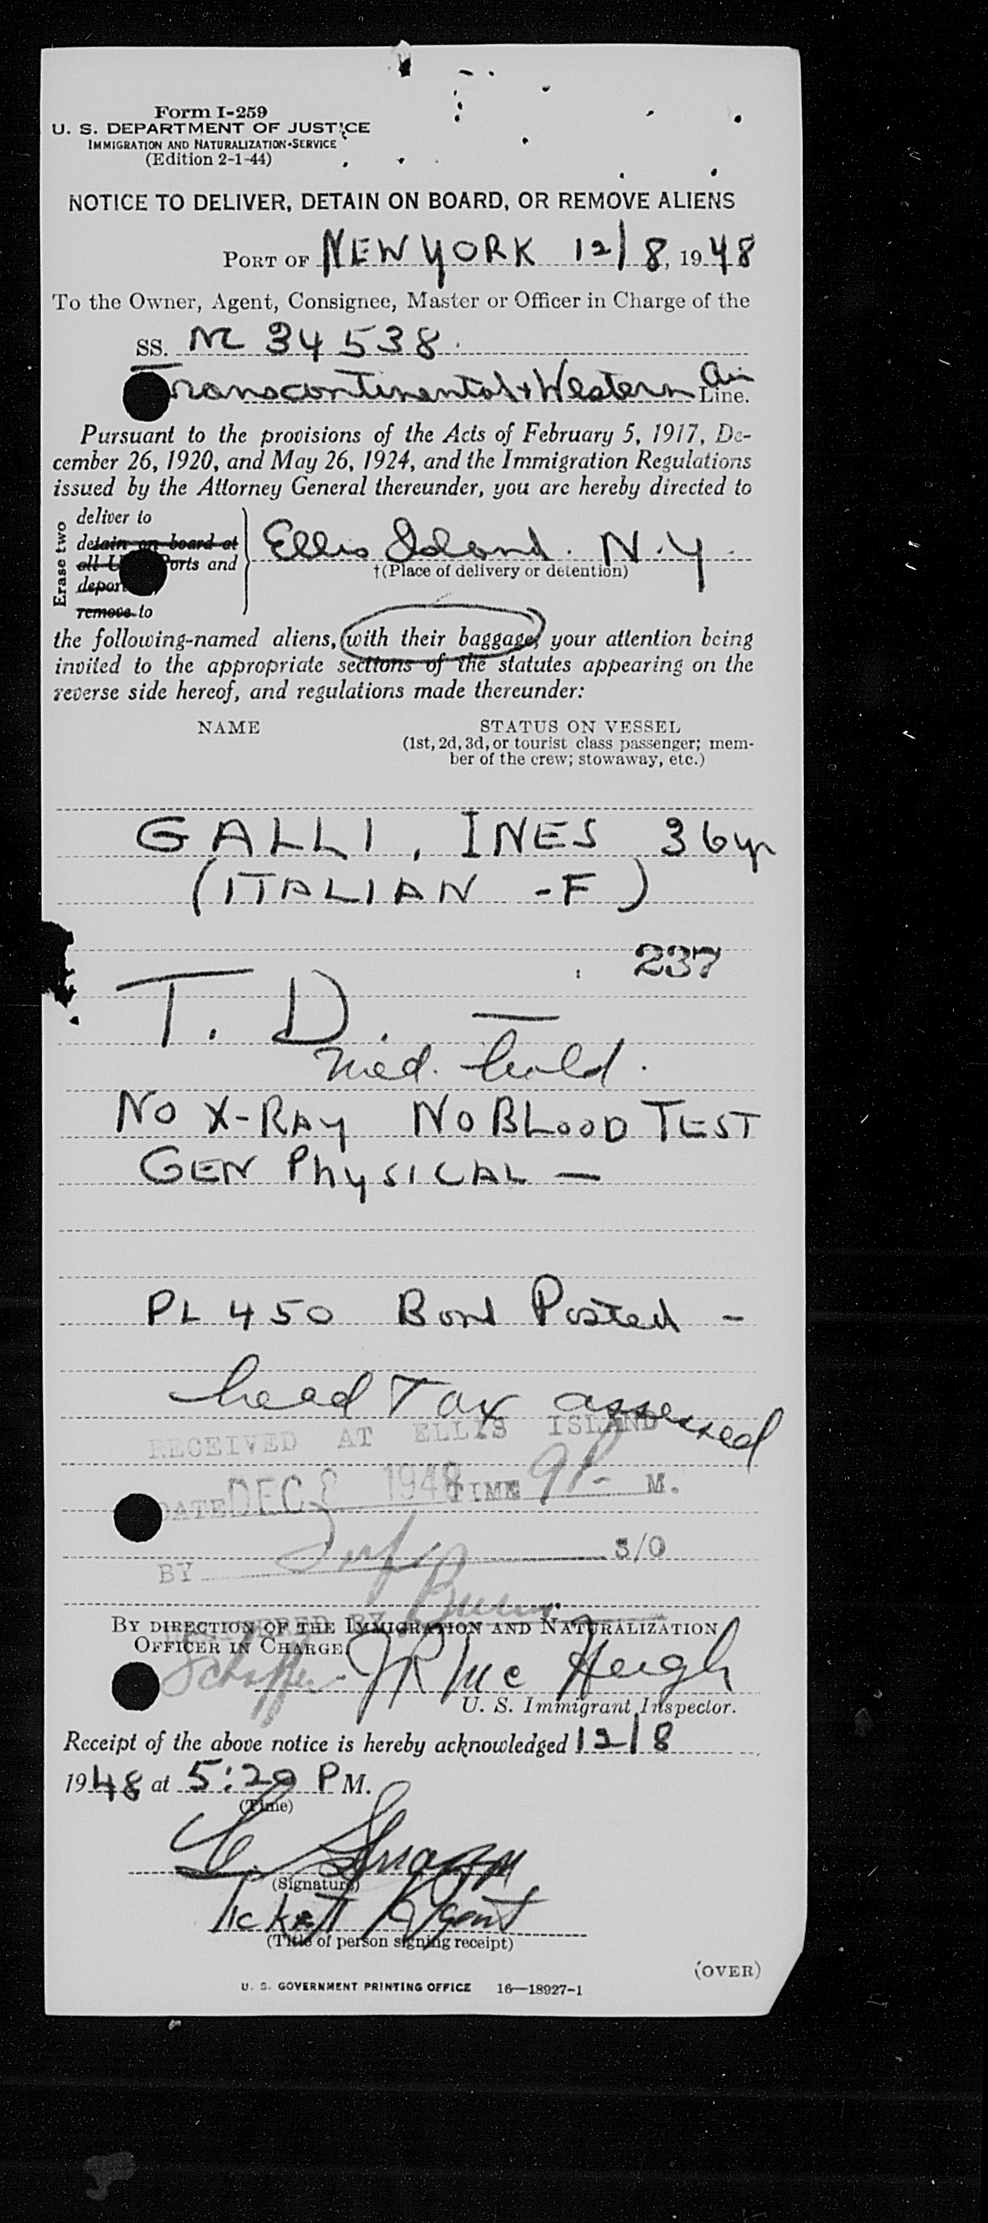 Form I-259
U. S. DEPARTMENT OF JUSTICE
IMMIGRATION AND NATURALIZATION SERVICE
(Edition 2-1-44)
NOTICE TO DELIVER, DETAIN ON BOARD, OR REMOVE ALIENS
PORT OF NEW YORK 12/8, 1948
To the Owner, Agent, Consignee, Master or Officer in Charge of the
SS. NC 34538
Transcontinental & Western Air Line.
Pursuant to the provisions of the Acts of February 5, 1917, De-
cember 26, 1920, and May 26, 1924, and the Immigration Regulations
issued by the Attorney General thereunder, you are hereby directed to
Erase two
deliver to
detain on board at
all U. Ports and
deport
remove to
Ellis Island. N.Y.
†(Place of delivery or detention)
the following-named aliens, with their baggage, your attention being
invited to the appropriate sections of the statutes appearing on the
reverse side hereof, and regulations made thereunder:
NAME STATUS ON VESSEL
(1st, 2d, 3d, or tourist class passenger; mem-
ber of the crew; stowaway, etc.)
GALLI, INES 36 yr
(ITALIAN - F)
237
T. D. —
Med. hold.
NO X-RAY NO BLOOD TEST
GEN PHYSICAL —
PL 450 Bond Posted -
head Tax assessed
RECEIVED AT ELLIS ISLAND
DATE DEC 8 1948 TIME 9 P- M.
BY S/O
BY DIRECTION OF THE IMMIGRATION AND NATURALIZATION
OFFICER IN CHARGE.
J R Mc Heigh
U. S. Immigrant Inspector.
Receipt of the above notice is hereby acknowledged 12/8
1948 at 5:20 P M.
(Time)
(Signature)
Tickett Agent
(Title of person signing receipt)
(OVER)
U. S. GOVERNMENT PRINTING OFFICE 16—18927-1